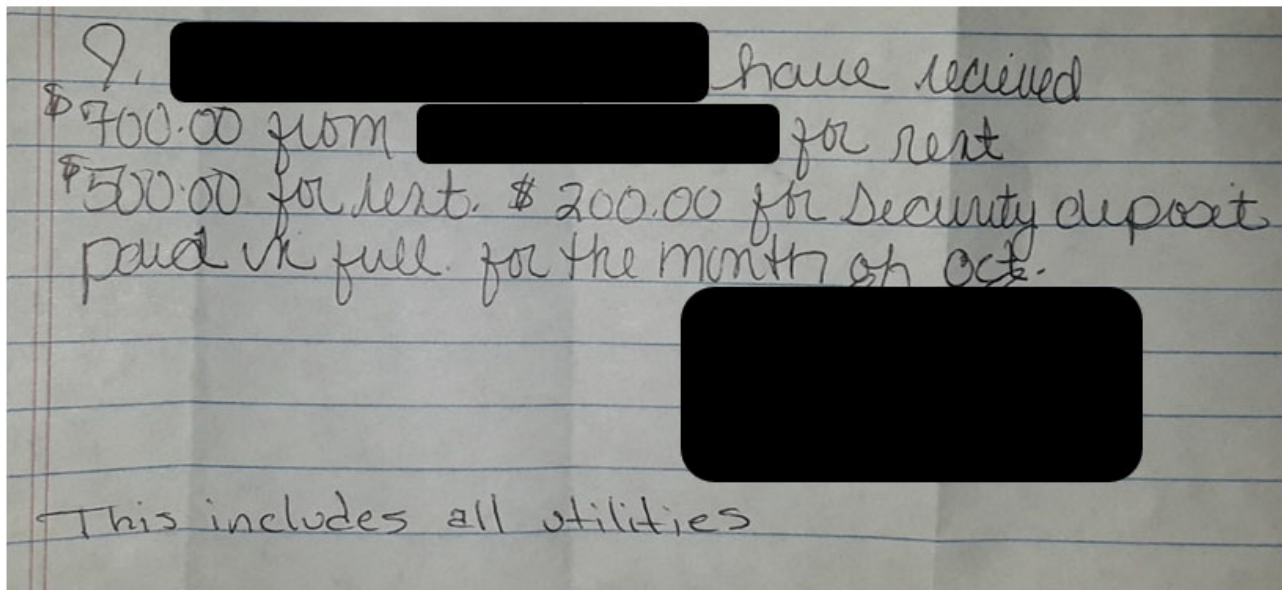 I, have recieved
$700.00 from for rent
$500.00 for rent. $200.00 for security deposit
paid in full. for the month of Oct.
This includes all utilities